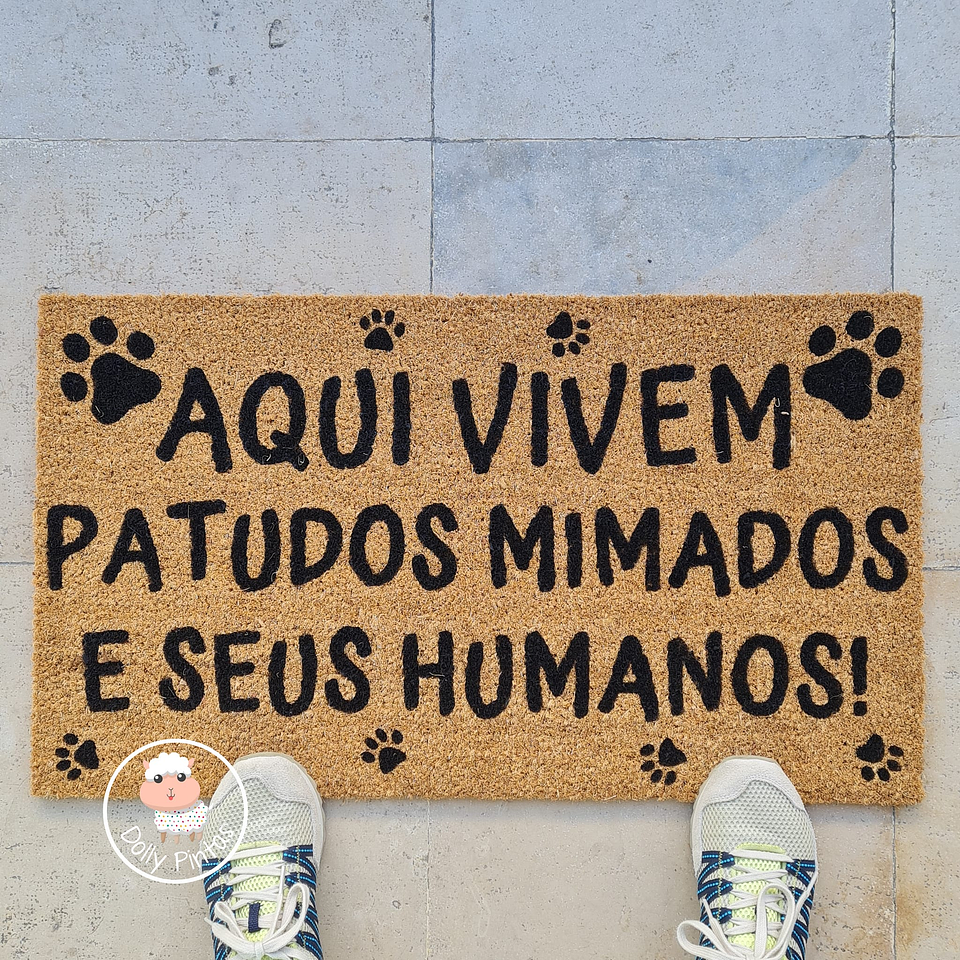 AQUI VIVEM
PATUDOS MIMADOS
E SEUS HUMANOS!
Dolly Pintas